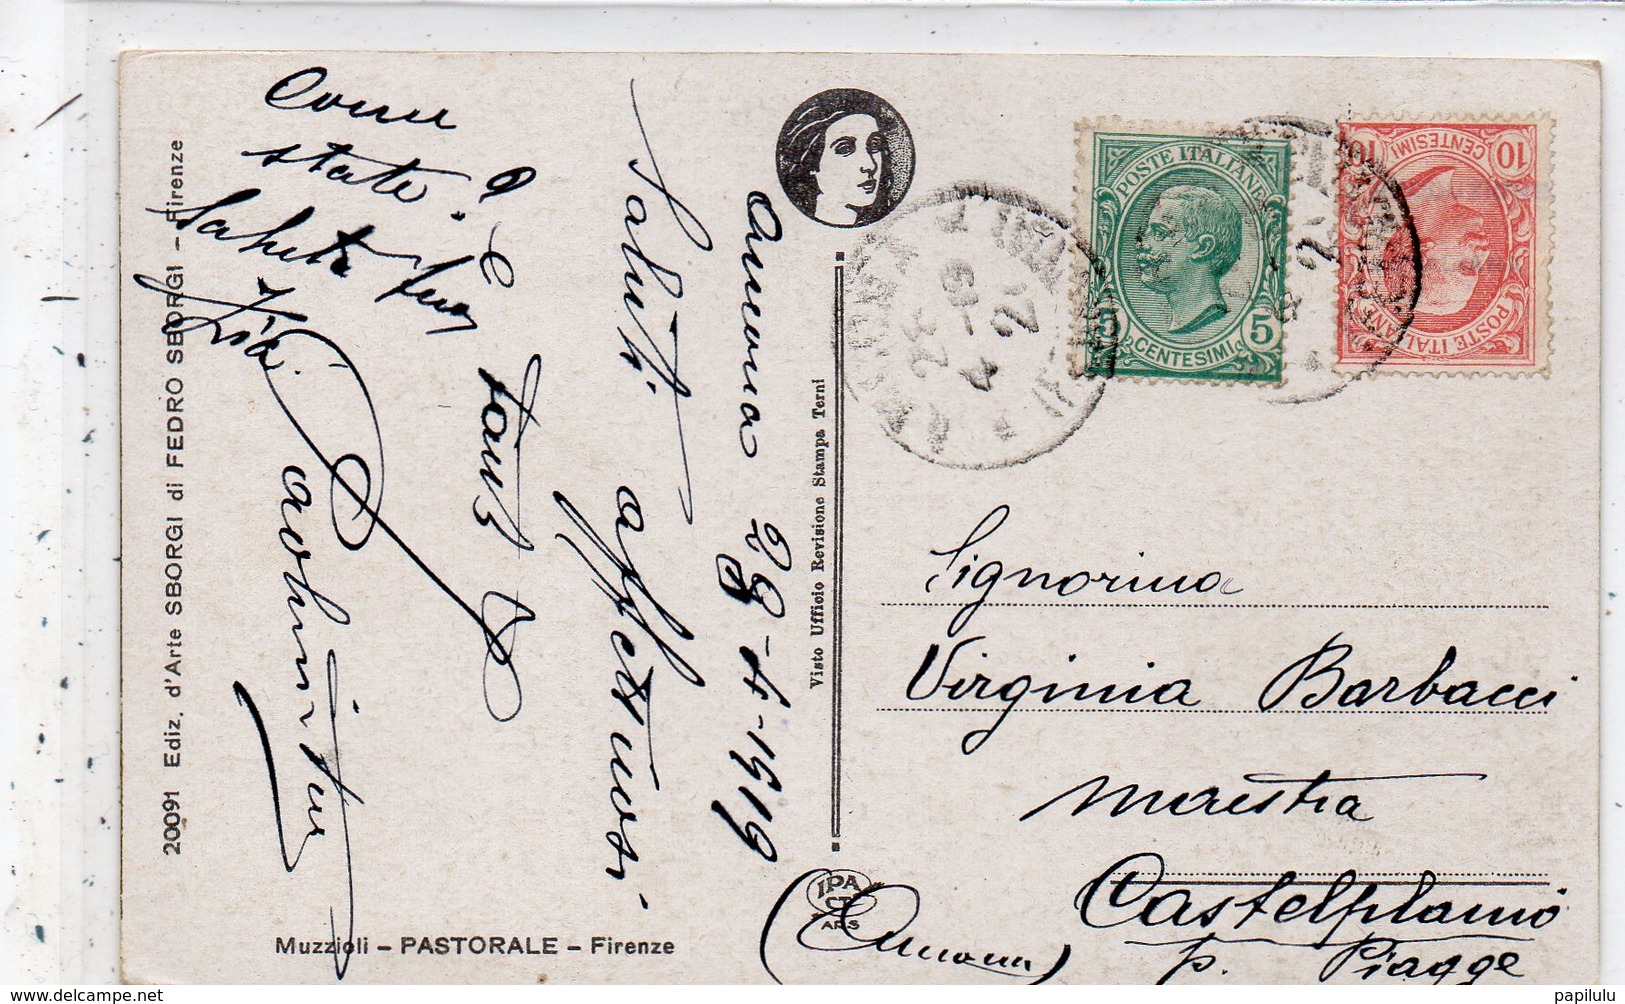 Come
state.
Saluta
Zia
Ancona 28-4-1919
Saluti affettuosi
e
20091 Ediz. d'Arte SBORGI di FEDRO SBORGI - Firenze
Muzzioli - PASTORALE - Firenze
Visto Ufficio Revisione Stampa Terni
IPA
CT
ARS
POSTE ITALIANE
5 5
CENTESIMI
10 10
CENTESIMI
POSTE ITALIANE
Signorina
Virginia Barbacci
maestra
Castelplanio
p. Piagge
(Ancona)
papilulu